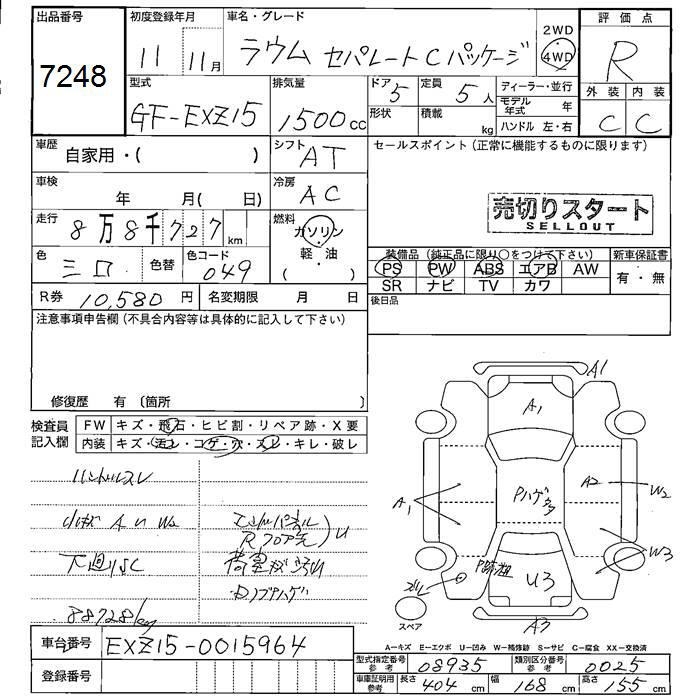 出品番号
7248
初度登録年月
11 11月
車名・グレード
ラウム セパレートCパッケージ
2WD
4WD
評価点
R
型式
GF-EXZ15
排気量
1500cc
ドア
5
定員
5人
形状
積載
kg
ディーラー・並行
モデル年式 年
ハンドル 左・右
外装 内装
C C
車歴
自家用・( )
シフト
AT
セールスポイント(正常に機能するものに限ります)
車検
年 月( 日)
冷房
AC
売切りスタート
SELLOUT
走行
8万8千727km
燃料
ガソリン
軽・油
( )
色
シロ
色替
色コード
049
装備品(純正品に限り○をつけて下さい)
新車保証書
PS PW ABS エアB AW
有・無
SR ナビ TV カワ
R券 10,580円
名変期限 月 日
後日品
注意事項申告欄(不具合内容等は具体的に記入して下さい)
修復歴 有(箇所 )
検査員記入欄
FW キズ・飛石・ヒビ割・リペア跡・X要
内装 キズ・汚レ・コゲ・穴・スレ・キレ・破レ
ハンドルスレ
小キズ A U W2
エンドパネル
Rフロア先
U
下廻りSC
88728km
A1
A1
A1
A2
W2
Pハゲ
W3
U3
A3
スペア
A-キズ E-エクボ U-凹み W-補修跡 S-サビ C-腐食 XX-交換済
車台番号 EXZ15-0015964
登録番号
型式指定番号
参考
08935
類別区分番号
参考
0025
車庫証明用
参考
長さ 404cm
幅 168cm
高さ 155cm